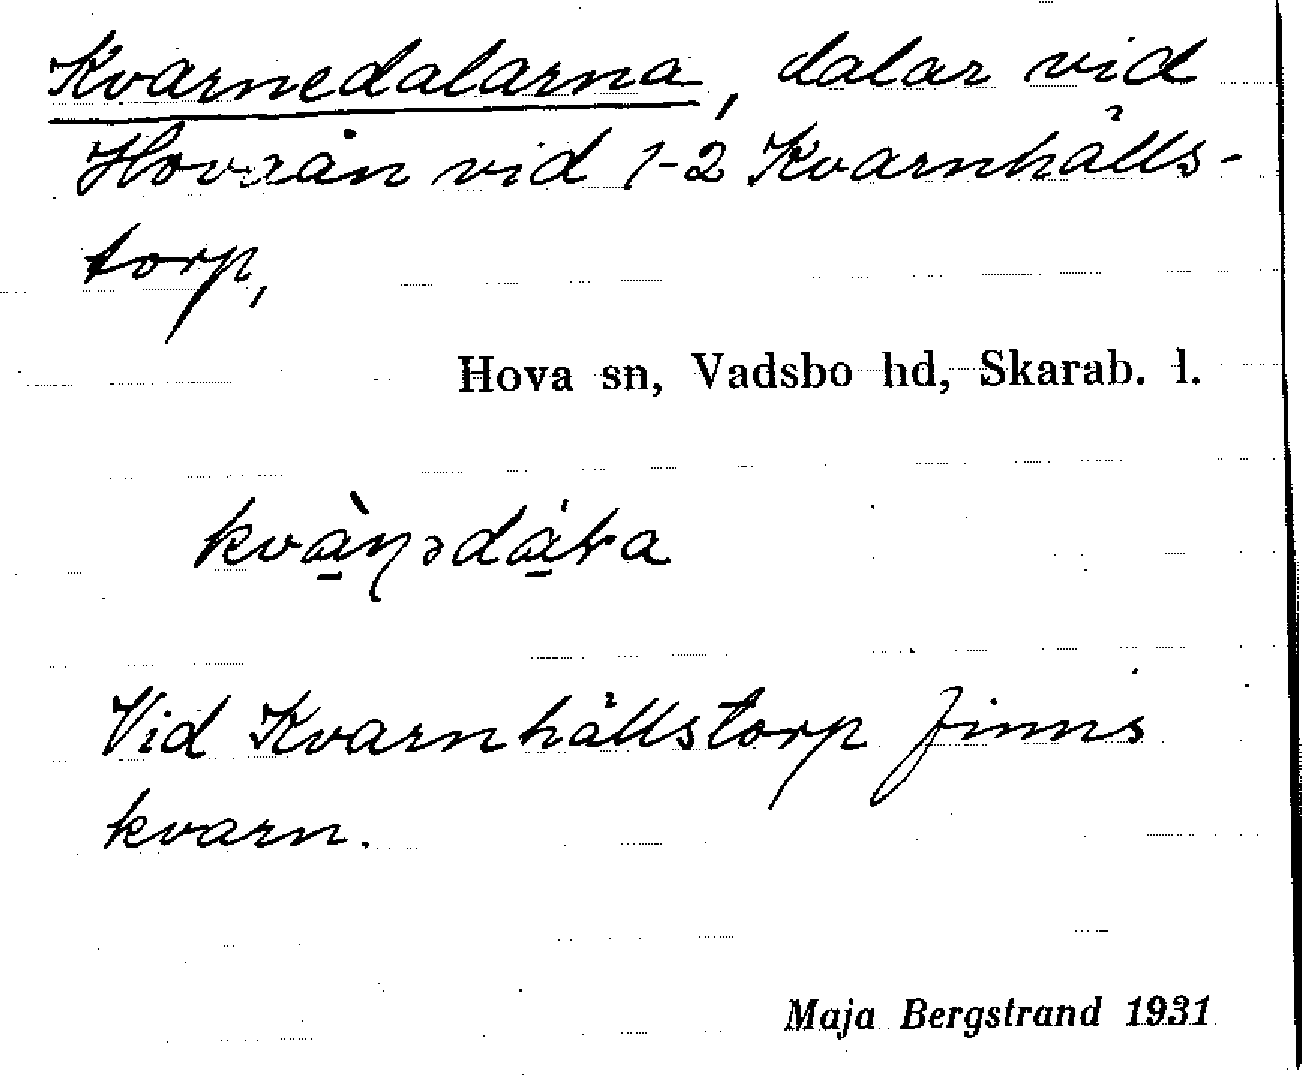 Kvarnedalarna, dalar vid
Hovaån vid 1-2 Kvarnhålls-
torp,
Hova sn, Vadsbo hd, Skarab. l.
Vid Kvarnhållstorp finns
kvarn.
Maja Bergstrand 1931